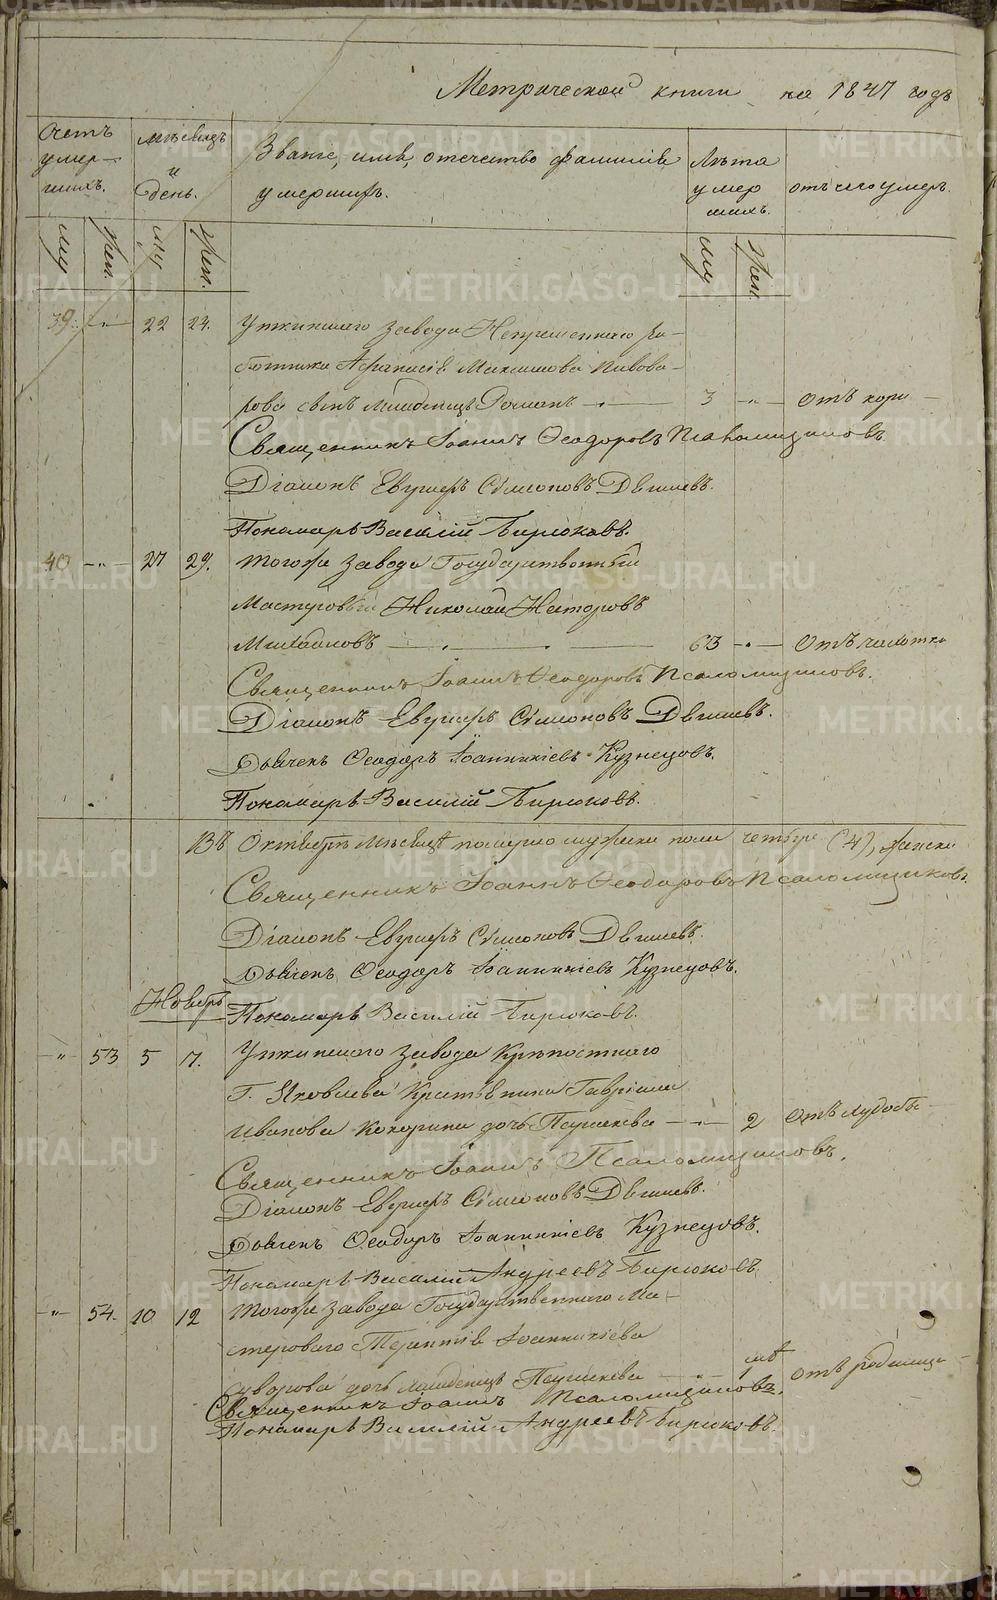 Метрической книги на 1847 годъ
Счетъ умер-шихъ.
мѣсяцъ и день.
Званіе, имя, отечество фамилія умершихъ.
Лѣта умершихъ.
отъ чего умеръ.
му Жен. му Жен. му Жен.
39. —"— 22 24. Уткинскаго завода Непремѣннаго ра-
ботника Афанасія Максимова Пивова-
рова сынъ младенецъ Романъ — 3 —"— отъ кори
Священникъ Іоаннъ Ѳеодоровъ Псаломщиковъ
Діаконъ Евгшефъ Сѵмеоновъ
Пономарь Василій Бирюковъ.
40 —"— 27 29. тогоже завода Государственный
Мастеровый Николай
63 —"— Отъ чахотки
Священникъ Іоаннъ Ѳеодоровъ Псаломщиковъ.
Діаконъ Сѵмеоновъ
Дьячекъ Ѳеодоръ Іоанникіевъ Кузнецовъ.
Пономарь Василій Бирюковъ.
Въ Октябрѣ мѣсяцѣ померло мужеска пола четыре (4), женска
Священникъ Іоаннъ Ѳеодоровъ Псаломщиковъ.
Діаконъ Сѵмеоновъ
Дьячекъ Ѳеодоръ Іоанникіевъ Кузнецовъ.
Ноябрь
Пономарь Василій Бирюковъ.
—"— 53 5 7. Уткинскаго завода Крѣпостнаго
Г. Яковлева Крестьянина Гавріила
Иванова Кокорина дочь —"— 2 Отъ
Священникъ Іоаннъ Псаломщиковъ.
Діаконъ Сѵмеоновъ
Дьячекъ Ѳеодоръ Іоанникіевъ Кузнецовъ.
Пономарь Василій Андреевъ Бирюковъ
—"— 54. 10 12 тогоже завода Государственнаго Ма-
стероваго Терентія Іоанникіева
дочь младенецъ —"— 1 отъ родимца
Священникъ Іоаннъ Псаломщиковъ.
Пономарь Василій Андреевъ Бирюковъ.
METRIKI.GASO-URAL.RU